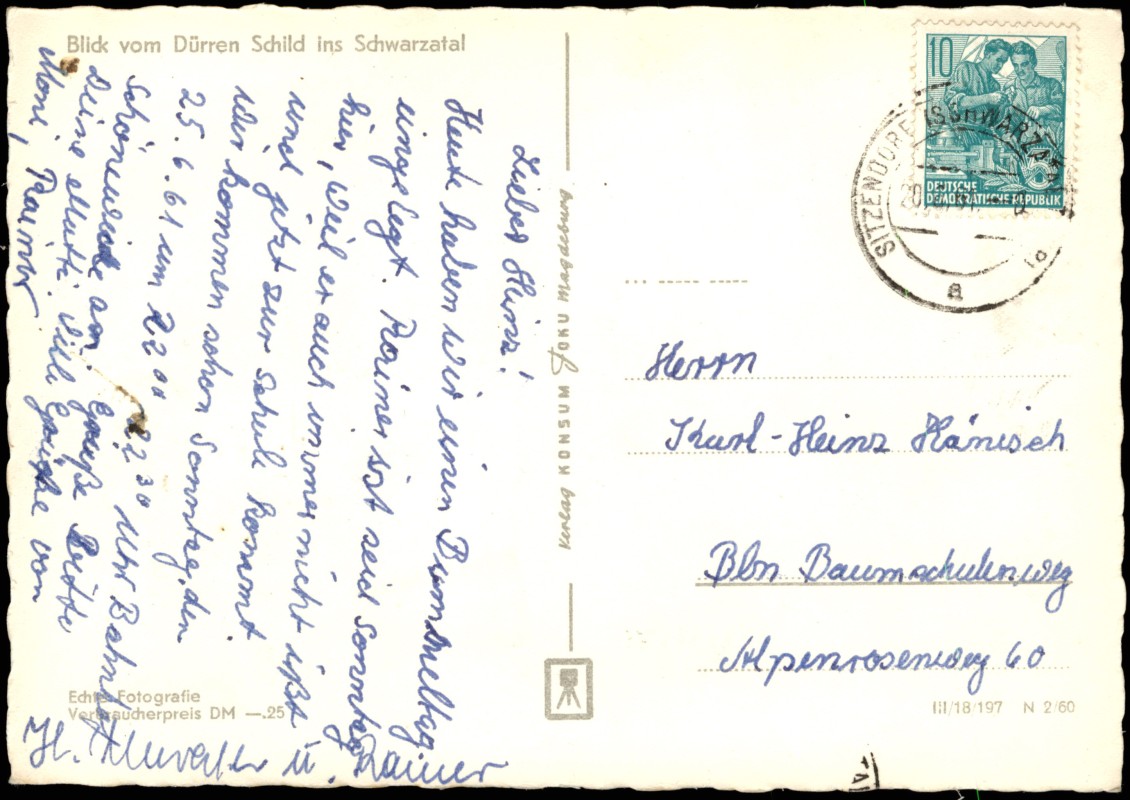 Blick vom Dürren Schild ins Schwarzatal
Lieber Heinz!
Heute haben wir einen Bummeltag
eingelegt. Rainer ist seit Sonntag
hier, weil er auch immer nicht ißt
und jetzt zur Schule kommt
Wir kommen schon Sonntag, den
25.6.61 um 22⁰⁰ 22³⁰ Uhr Bahnhof
Schöneweide an. Grüße bitte
Deine Mutti. Viele Grüße von
Moni, Rainer
H. u. Rainer
Echte Fotografie
Verbraucherpreis DM —.25
VERLAG KONSUM FOKU MAGDEBURG
10
DEUTSCHE
DEMOKRATISCHE REPUBLIK
SITZENDORF (SCHWARZATAL)
a
Herrn
Karl-Heinz Hänisch
Bln Baumschulenweg
Alpenrosenweg 60
III/18/197 N 2/60